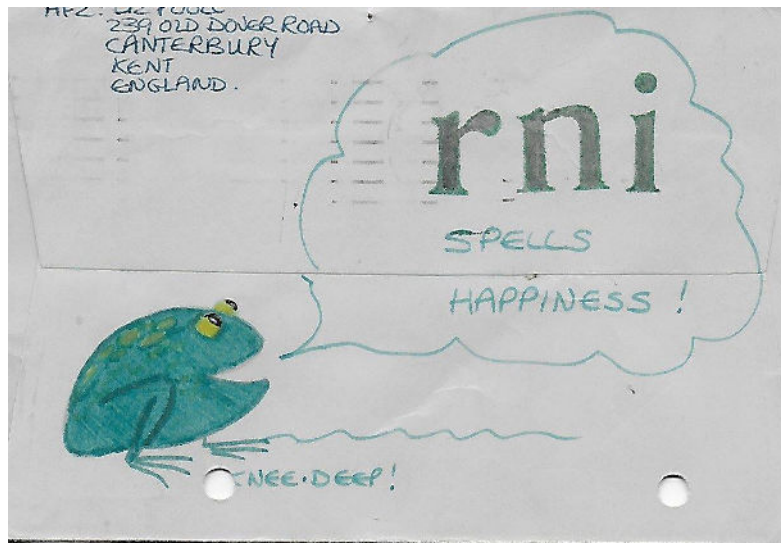 239 OLD DOVER ROAD
CANTERBURY
KENT
ENGLAND.
rni
SPELLS
HAPPINESS!
KNEE-DEEP!